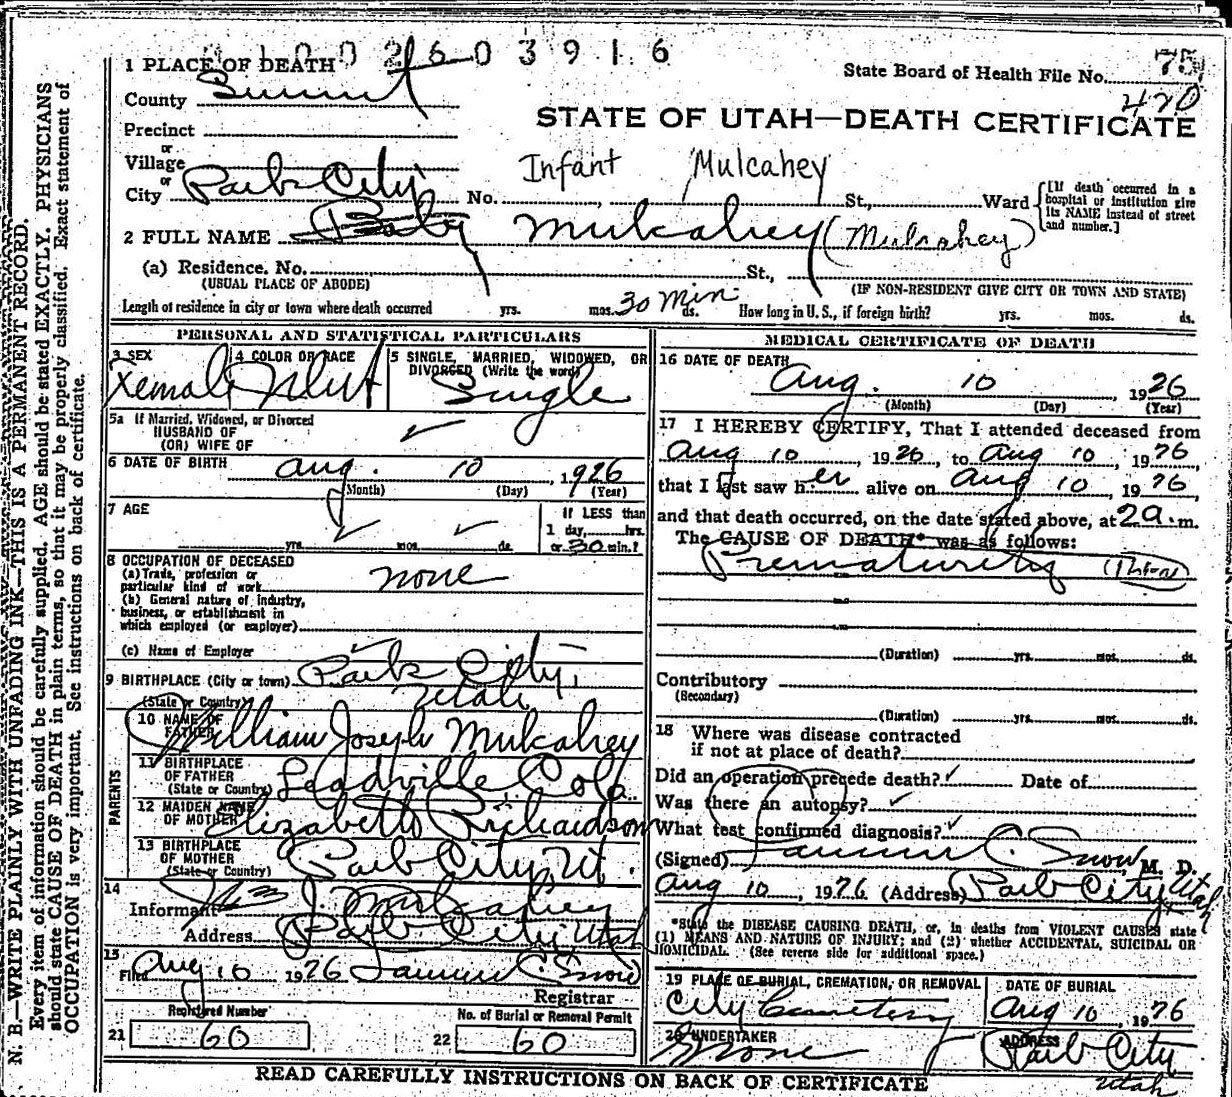 0 0 2 6 0 3 9 1 6
1 PLACE OF DEATH
State Board of Health File No. 75
420
County Summit
STATE OF UTAH—DEATH CERTIFICATE
Precinct
or
Village
Infant Mulcahey
or
City Park City No. St., Ward
[If death occurred in a hospital or institution give its NAME instead of street and number.]
2 FULL NAME Baby Mulcahey (Mulcahey)
(a) Residence. No. St.,
(USUAL PLACE OF ABODE) (IF NON-RESIDENT GIVE CITY OR TOWN AND STATE)
Length of residence in city or town where death occurred yrs. mos. 30 Min. ds. How long in U. S., if foreign birth? yrs. mos. ds.
PERSONAL AND STATISTICAL PARTICULARS
3 SEX Female
4 COLOR OR RACE
5 SINGLE, MARRIED, WIDOWED, OR DIVORCED (Write the word) Single
5a If Married, Widowed, or Divorced
HUSBAND OF
(OR) WIFE OF
6 DATE OF BIRTH Aug. 10, 1926
(Month) (Day) (Year)
7 AGE
yrs. mos. ds.
If LESS than
1 day, hrs.
or 30 min.?
8 OCCUPATION OF DECEASED
(a) Trade, profession or
particular kind of work none
(b) General nature of industry,
business, or establishment in
which employed (or employer)
(c) Name of Employer
9 BIRTHPLACE (City or town) Park City,
(State or Country) Utah
PARENTS
10 NAME OF FATHER William Joseph Mulcahey
11 BIRTHPLACE OF FATHER (State or Country) Leadville Colo.
12 MAIDEN NAME OF MOTHER Elizabeth Richardson
13 BIRTHPLACE OF MOTHER (State or Country) Park City, Ut.
14
Informant Wm J. Mulcahey
Address Park City Utah
15
Filed Aug 10 1926 C. Snow
Registrar
Registered Number
21 60
No. of Burial or Removal Permit
22 60
MEDICAL CERTIFICATE OF DEATH
16 DATE OF DEATH Aug. 10, 1926
(Month) (Day) (Year)
17 I HEREBY CERTIFY, That I attended deceased from
Aug 10, 1926, to Aug 10, 1926
that I last saw her alive on Aug 10, 1926,
and that death occurred, on the date stated above, at 2 a. m.
The CAUSE OF DEATH* was as follows:
Prematurity
(Duration) yrs. mos. ds.
Contributory
(Secondary)
(Duration) yrs. mos. ds.
18 Where was disease contracted
if not at place of death?
Did an operation precede death? Date of
Was there an autopsy?
What test confirmed diagnosis?
(Signed) C. Snow, M. D.
Aug 10, 1926 (Address) Park City, Utah
*State the DISEASE CAUSING DEATH, or, in deaths from VIOLENT CAUSES state
(1) MEANS AND NATURE OF INJURY; and (2) whether ACCIDENTAL, SUICIDAL OR
HOMICIDAL. (See reverse side for additional space.)
19 PLACE OF BURIAL, CREMATION, OR REMOVAL City Cemetery
DATE OF BURIAL Aug 10, 1926
20 UNDERTAKER None
ADDRESS Park City
Utah
READ CAREFULLY INSTRUCTIONS ON BACK OF CERTIFICATE
N. B.—WRITE PLAINLY WITH UNFADING INK—THIS IS A PERMANENT RECORD.
Every item of information should be carefully supplied. AGE should be stated EXACTLY. PHYSICIANS
should state CAUSE OF DEATH in plain terms, so that it may be properly classified. Exact statement of
OCCUPATION is very important. See instructions on back of certificate.